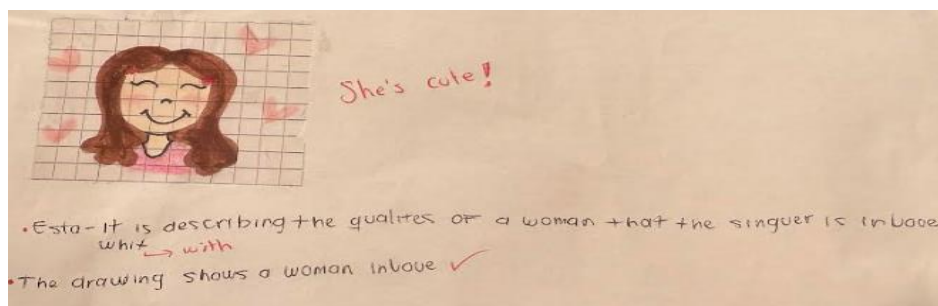 She's cute!
• Esta - It is describing the qualites of a woman that the singuer is inlove
whit → with
• The drawing shows a woman inlove ✓